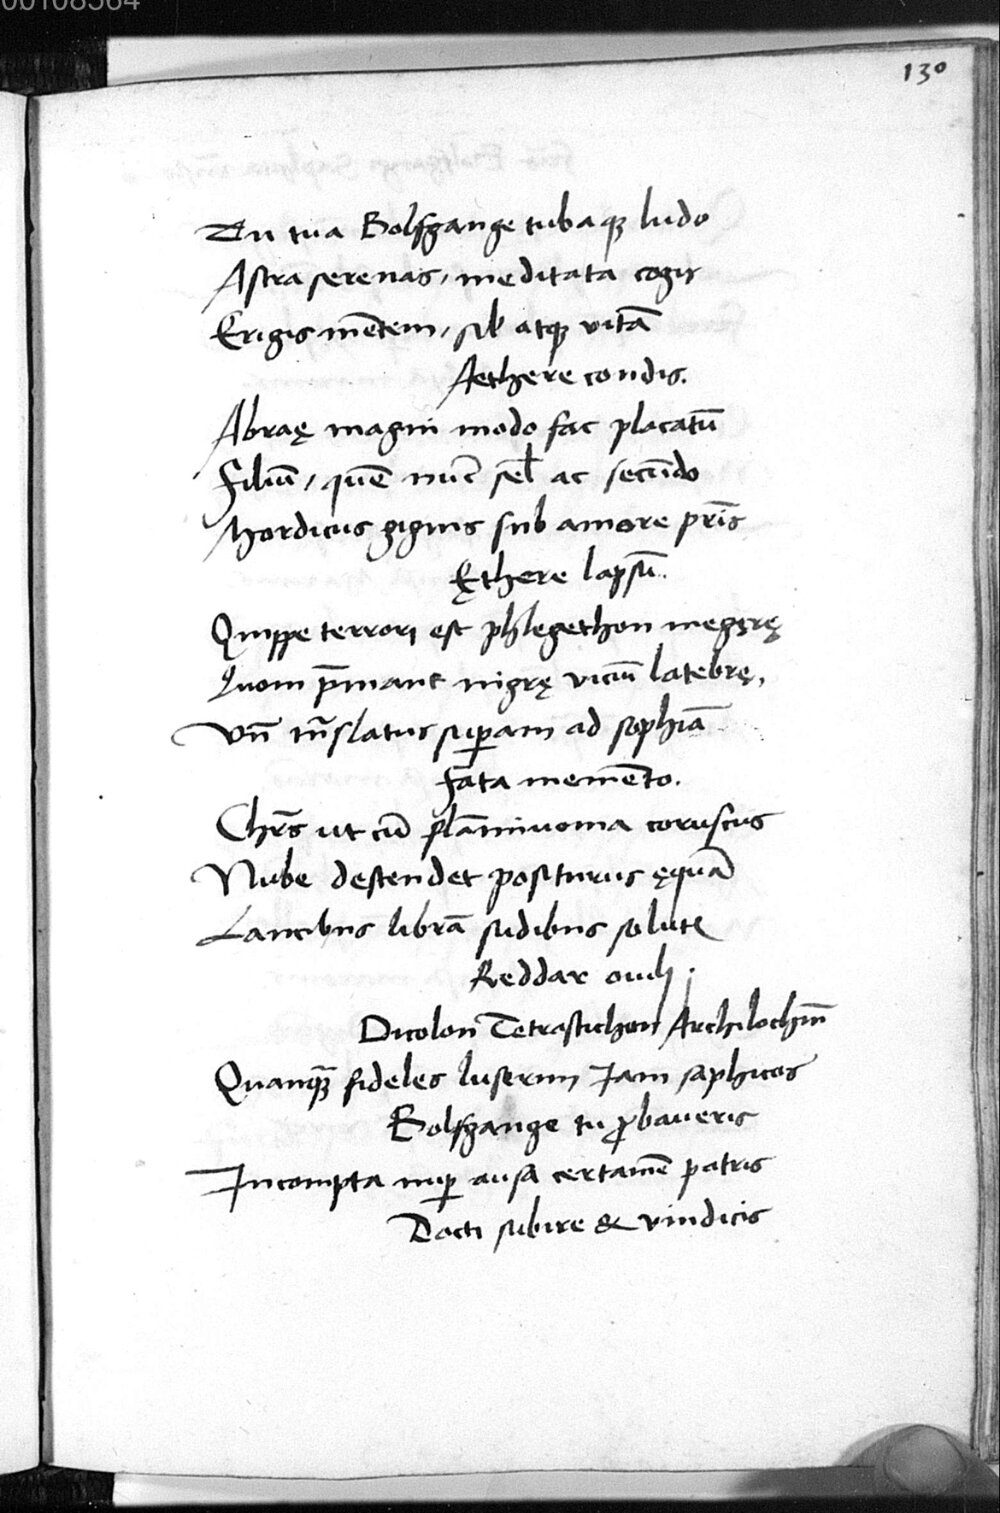 00108564
130
Tu tua Bolfgange tubaqꝫ ludo
Astra serenas, meditata cogis
Erigis mẽtem, sil̃ atqꝫ vitã
Aethere condis.
Abraę magni modo fac placatũ
Filiũ, quẽ nuc̃ sel̃ ac secũdo
Nordicus gignis sub amore pr̃is
Ęthere lapsũ.
Quippe terrori est phlegethon megęrę
Quom p̃mant nigrę viciũ latebrę,
Vñ tr̃slatus suꝑam ad sophiã
Fata memẽto.
Chr̃s ut cũ flãmivoma coruscus
Nube descendet positurus ęquã
Lancibus librã sudibus solutꝭ
Reddar ovili.
Dicolon Tetrastichon Archilochiũ
Quanqꝫ̃ fideles luserim Jam saphicos
Bolfgange tu ꝓbaveris
Incompta nuꝑ ausa certamẽ patris
Docti subire & vindicis